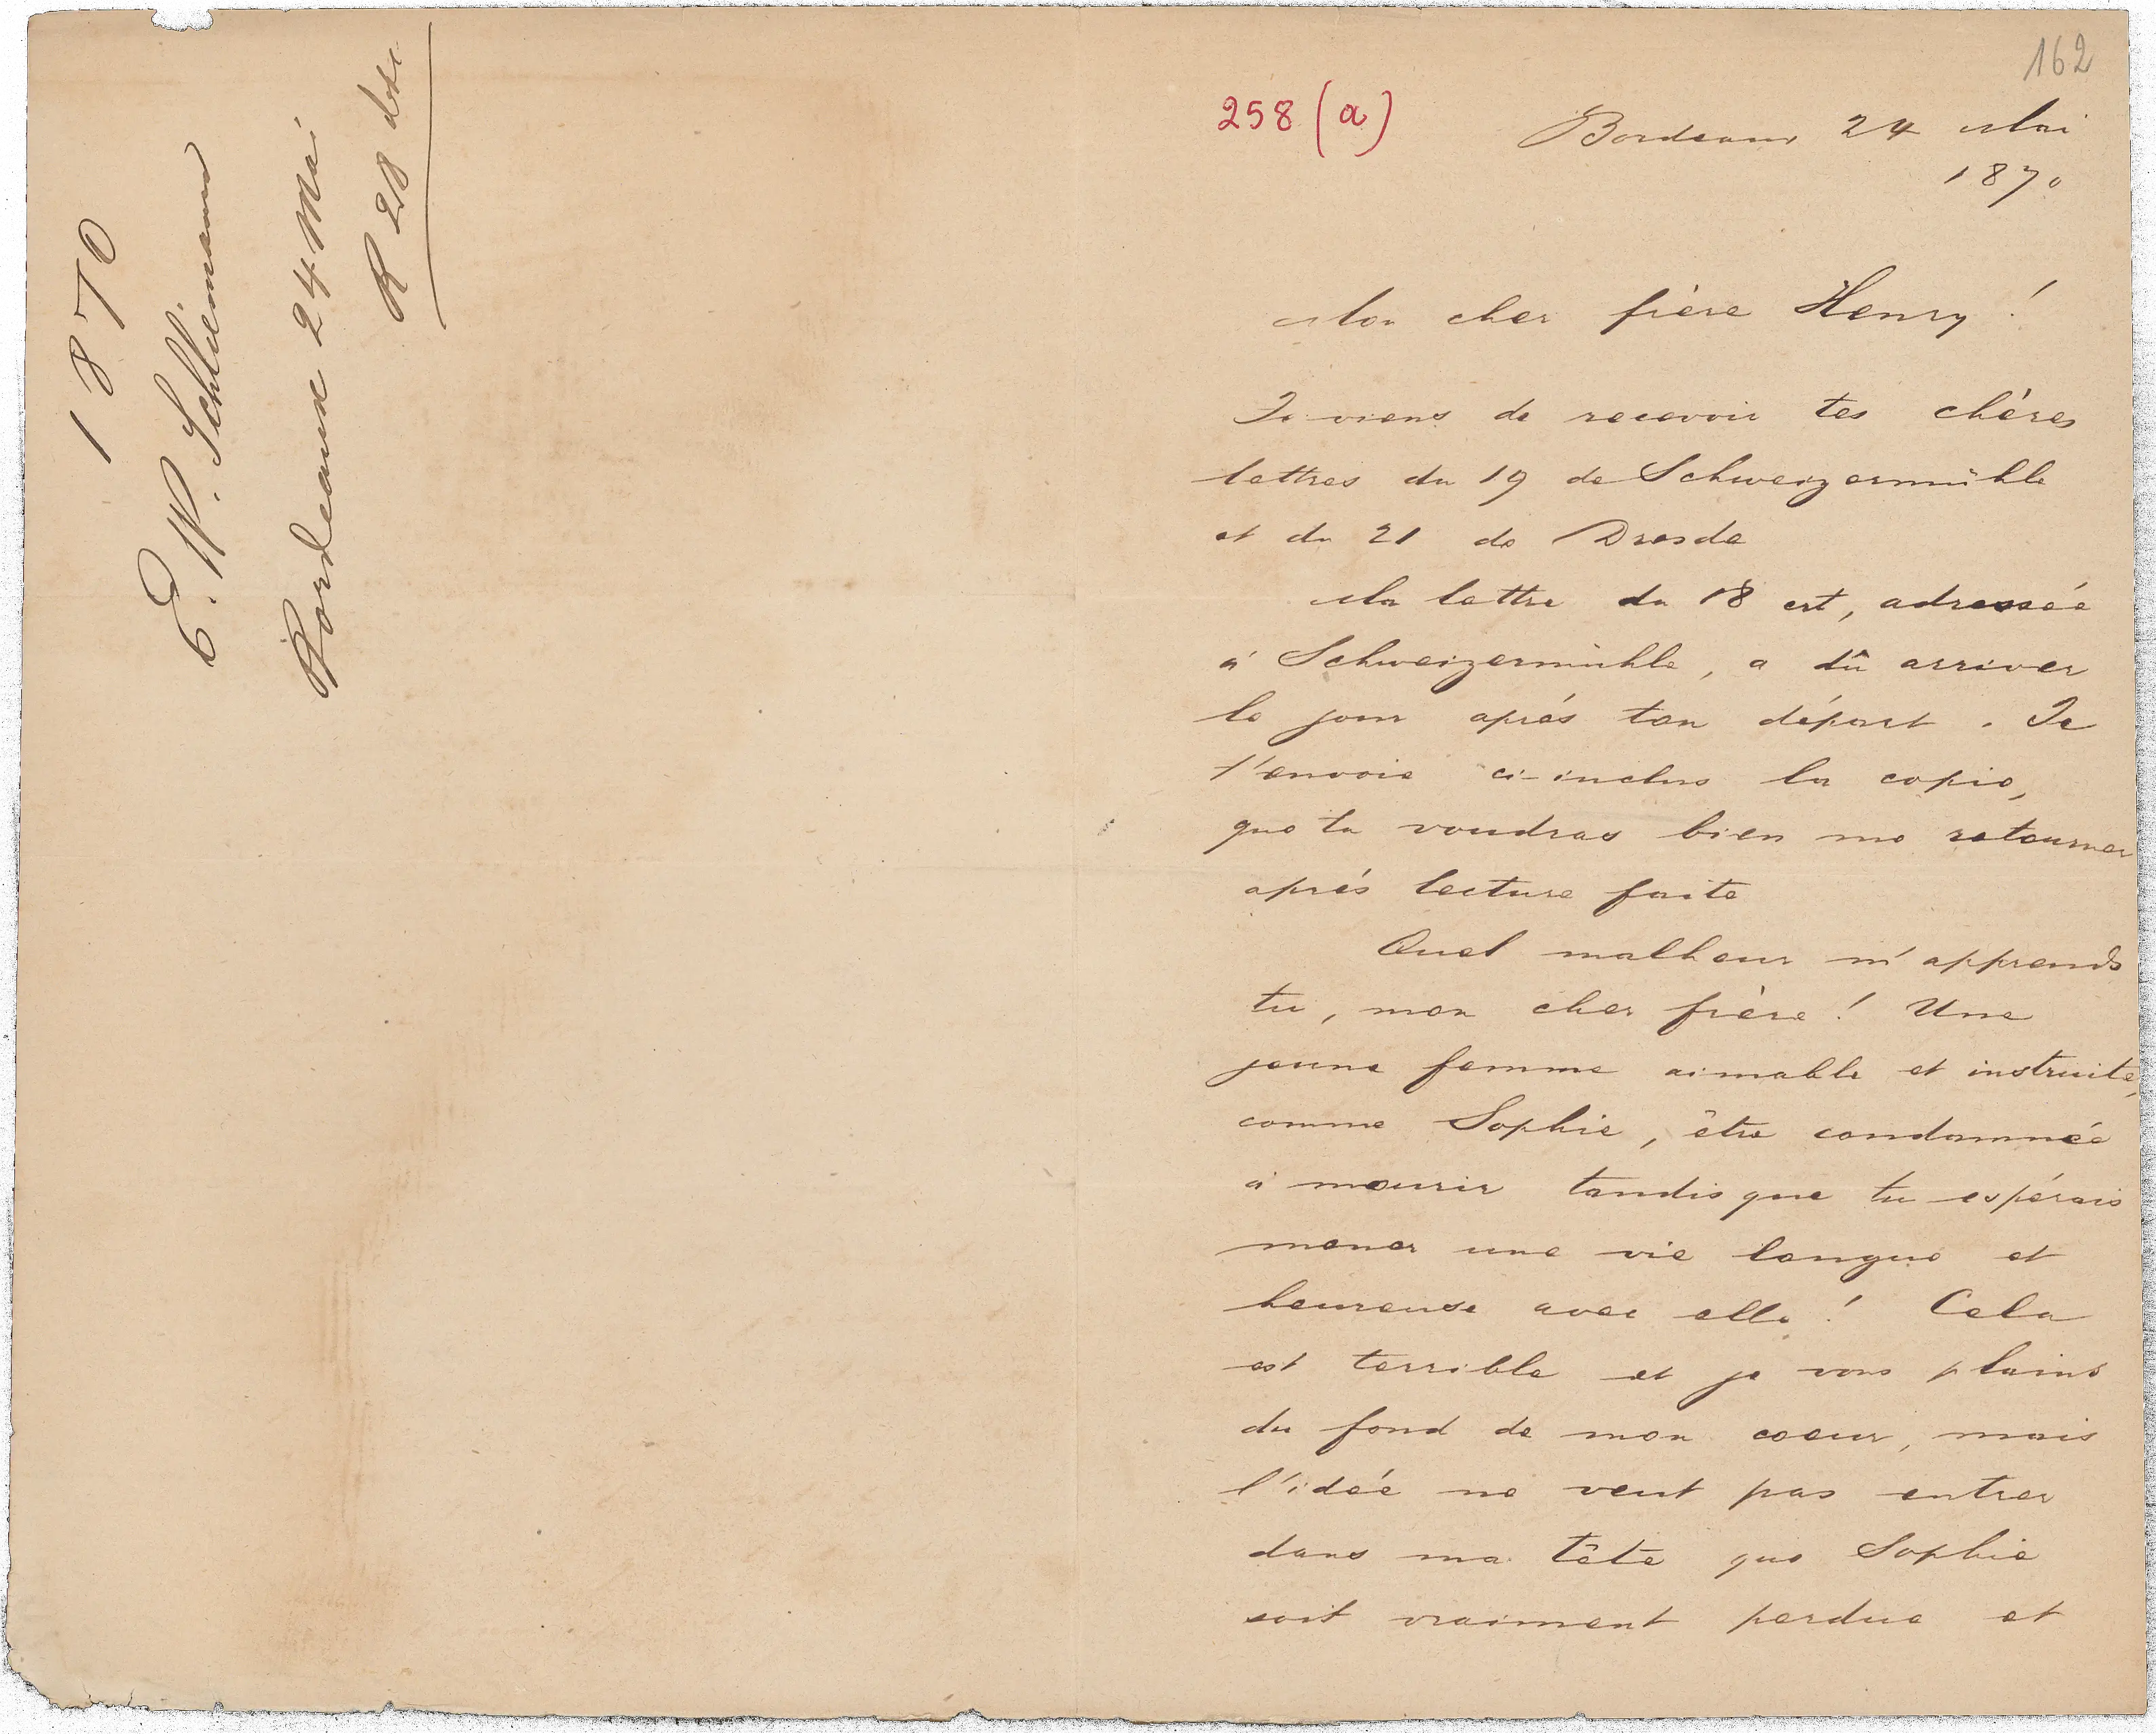 1870
E. W. Schliemann
Bordeaux 24 Mai
R 28 dto
162
258 (a)
Bordeaux 24 Mai
1870
Mon cher frère Henry!
Je viens de recevoir tes chères
lettres du 19 de Schweizermühle
et du 21 de Dresde
Ma lettre du 18 crt, adressée
à Schweizermühle, a dû arriver
le jour après ton départ. Je
t'envoie ci-inclus la copie,
que tu voudras bien me retourner
après lecture faite
Quel malheur m'apprends
tu, mon cher frère! Une
jeune femme aimable et instruite,
comme Sophie, être condamnée
à mourir tandis que tu espérais
mener une vie longue et
heureuse avec elle! Cela
est terrible et je vous plains
du fond de mon coeur, mais
l'idée ne veut pas entrer
dans ma tête que Sophie
soit vraiment perdue et